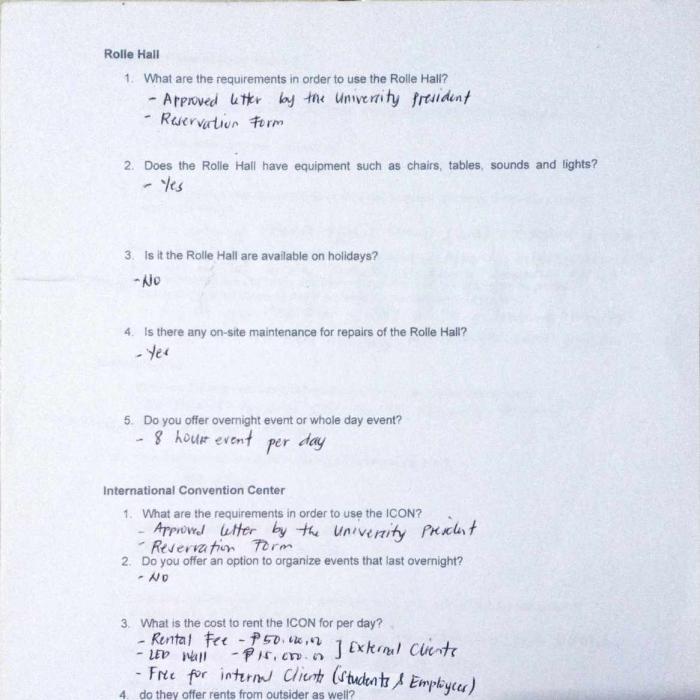 Rolle Hall
1. What are the requirements in order to use the Rolle Hall?
- Approved letter by the University President
- Reservation Form
2. Does the Rolle Hall have equipment such as chairs, tables, sounds and lights?
- Yes
3. Is it the Rolle Hall are available on holidays?
- No
4. Is there any on-site maintenance for repairs of the Rolle Hall?
- Yes
5. Do you offer overnight event or whole day event?
- 8 hours event per day
International Convention Center
1. What are the requirements in order to use the ICON?
- Approved letter by the University President
- Reservation Form
2. Do you offer an option to organize events that last overnight?
- No
3. What is the cost to rent the ICON for per day?
- Rental Fee - ₱50,000.00 ] External Clients
- LED Wall - ₱15,000.00
- Free for internal Clients (Students & Employees)
4. do they offer rents from outsider as well?